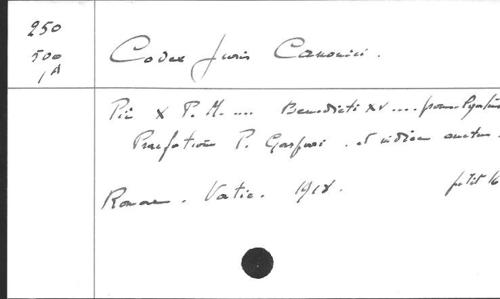 250
500
1A
Codex Juris Canonici.
Pii X P. M. .... Benedicti XV ....
Praefatione P. Gasparri . et indice auctus.
Romae. Vatic. 1918. petit 16